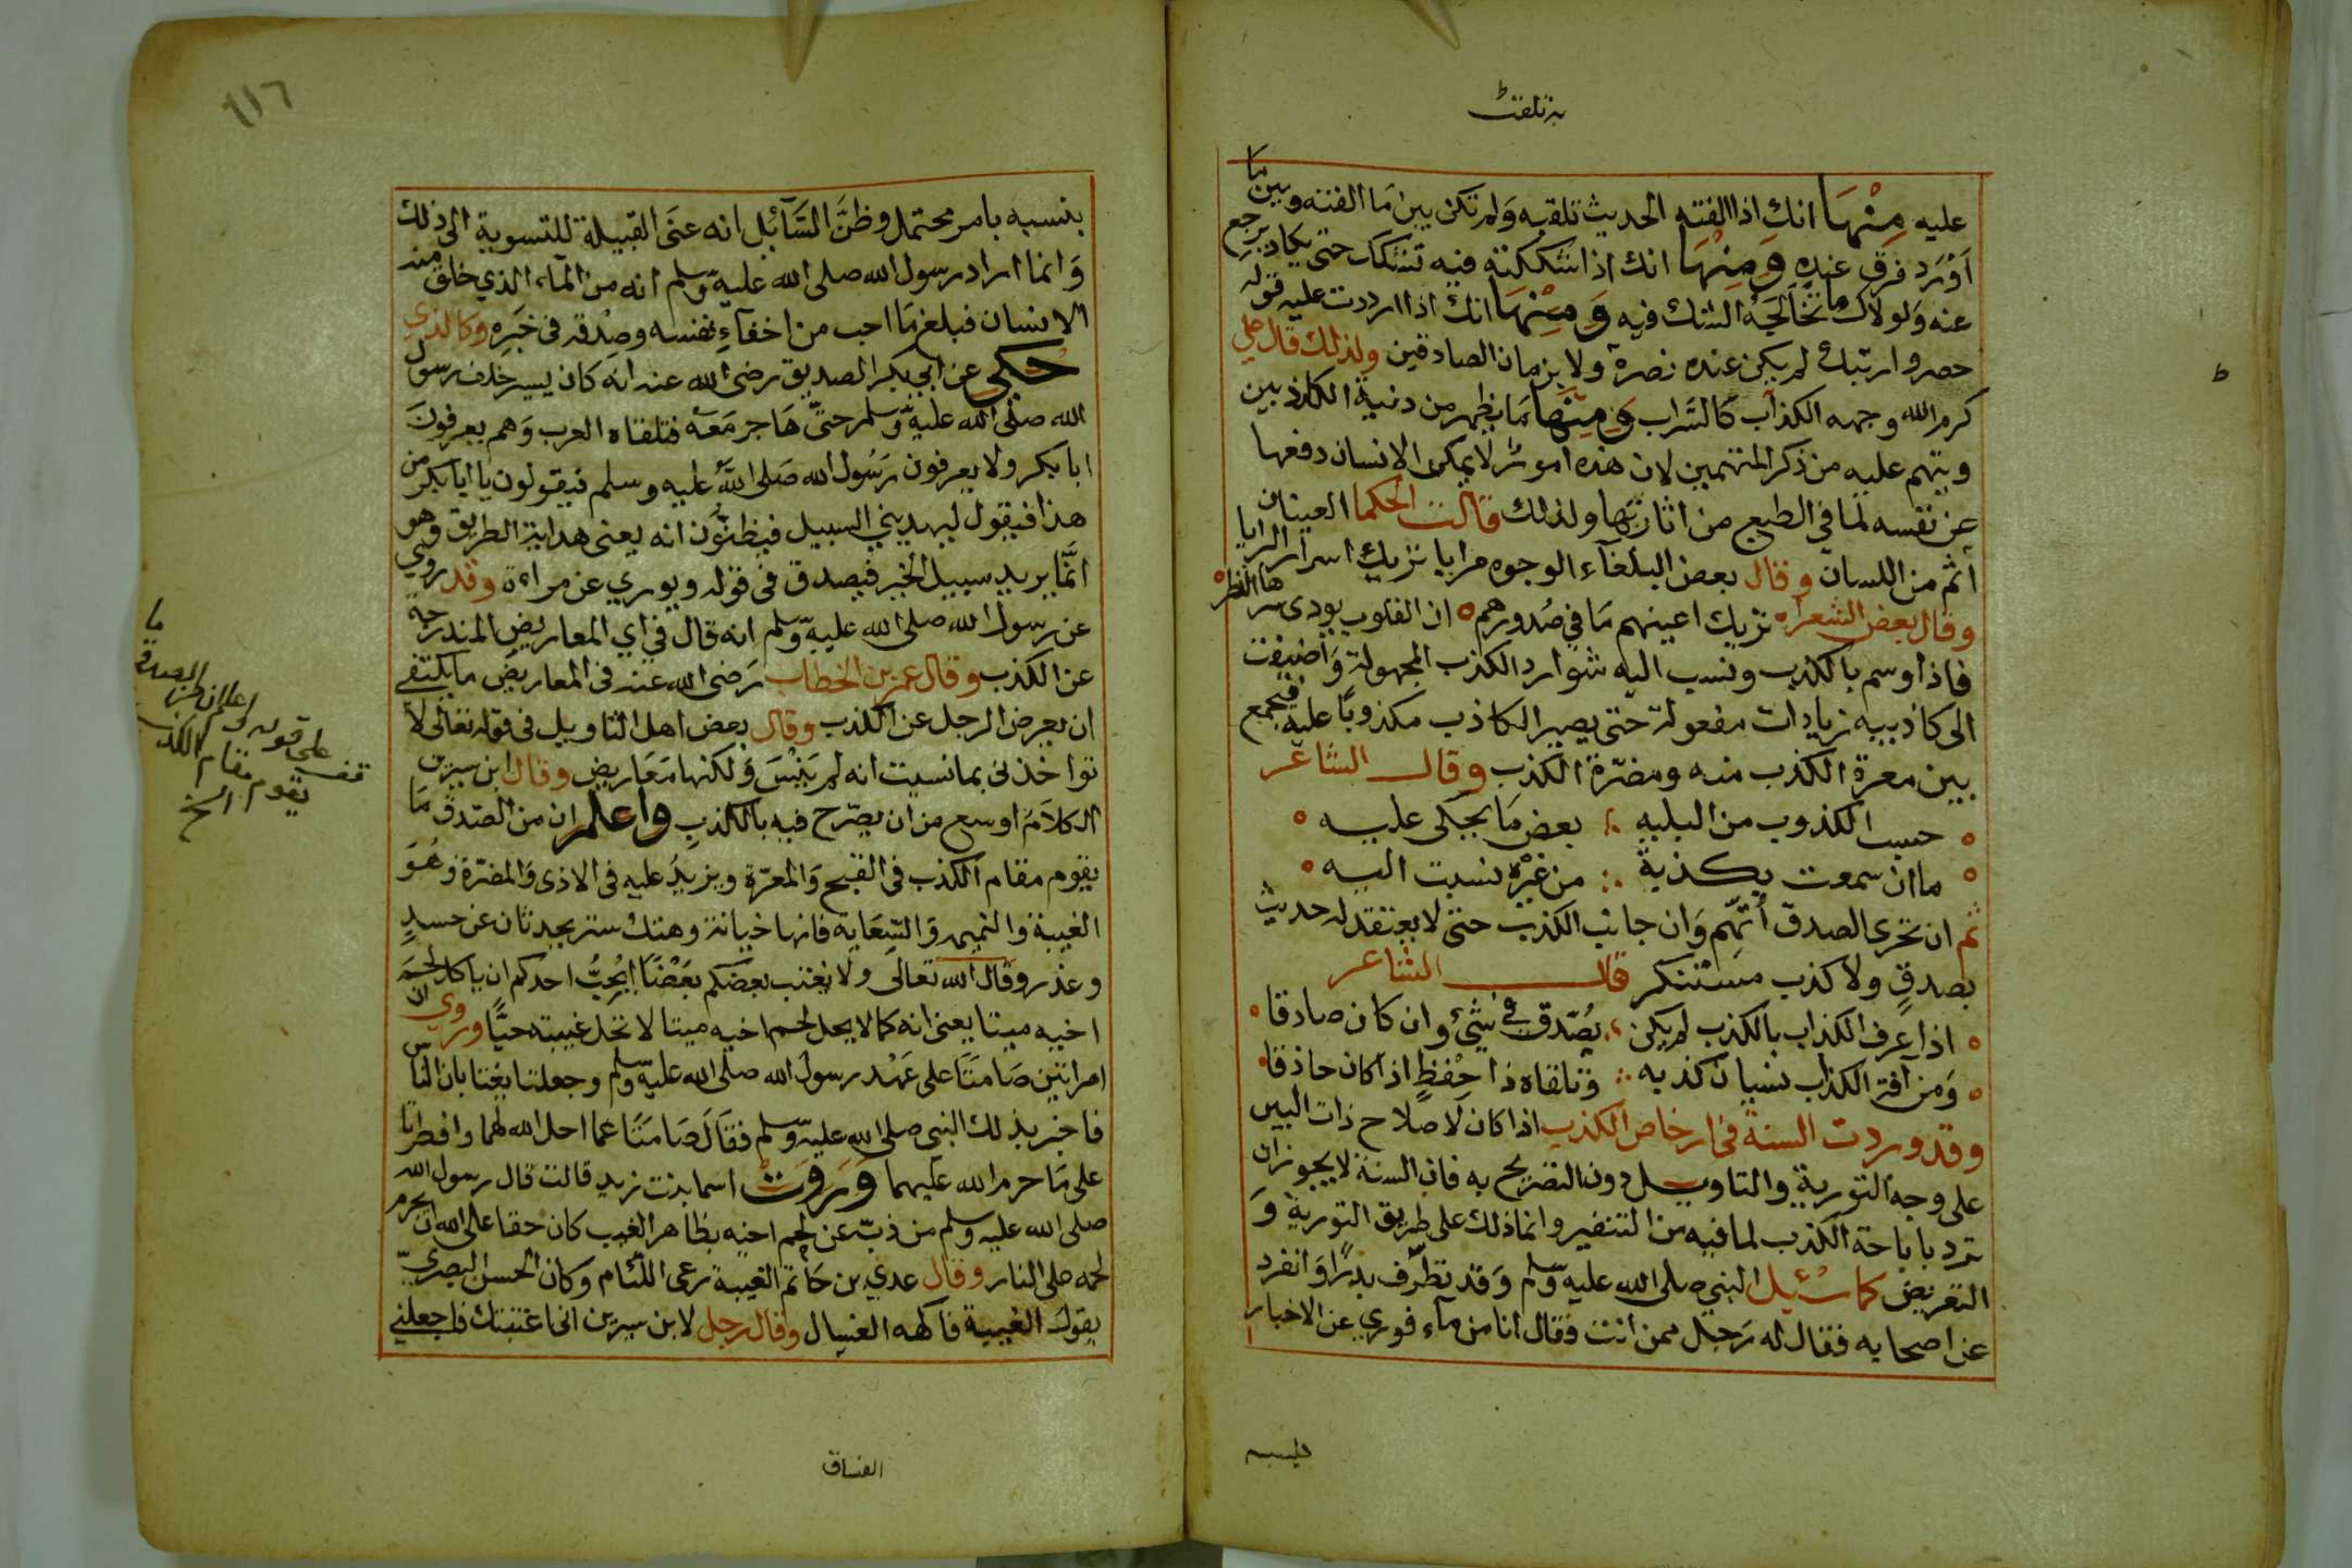 به تلقنت
عليه مِنْهَا انك اذا القنته الحديث تلقنه وَلم تكن بين مَا القنته وبين ما
اَوْرَد فرق عنده وَمِنْهَا انك اذا شككته فيه تشكك حتى يكاد يرجع
عنه وَلولاك ما تخالجَهُ الشك فيه وَمِنْهَا انك اذا رددت عليه قوله
حصر وارتبك لم يكن عنده نصرة ولا برهان الصادقين ولذلك قال علي
كرم الله وجهه الكذاب كالسَّراب وَمِنْهَا مَا يظهر من دنية الكاذبين
وينم عليه من ذكر المتهمين لان هذه امور لا يمكن الانسان دفعها
عن نفسه لما في الطبع من اثارتها ولذلك قالت الحكما العينان
أنم من اللسان وقال بعض البلغآء الوجوه مرايا تريك اسرار البرايا
وقال بعض الشعراء تريك اعينهم مَا في صُدورهم ان القلوب يودى سرها النظر
فاذا وسم بالكذب ونسب اليه شوارد الكذب المجهولة وَأضيفت
الى كاذيبه زيادات مفعولة حتى يصير الكاذب مكذوبًا عليه فيجمع
بين معرة الكذب منه ومضرّة الكذب وقال الشاعر
حسب الكذوب من البليه ؞ بعض مَا يحكى عليه
ما ان سمعت بكذبة ؞ من غيره نسبت اليه
ثم ان تحرى الصدق أتهم وَان جانب الكذب حتى لا يعتقد له حديث
بصدقٍ ولا كذب مستنكر قال الشاعر
اذا عرف الكذاب بالكذب لم يكن ؞ يُصّدق في شئ وان كان صادقا
وَمن آفة الكذاب نسيان كذبه ؞ وتلقاه ذا حِفْظٍ اذا كان حاذقا
وقد وردت السنة في ارخاص الكذب اذا كان لاصلاح ذات البين
على وجه التورية والتاويل دون التصريح به فان السنة لا يجوز ان
ترد باباحة الكذب لما فيه من التنفير وانما ذلك على طريق التورية وَ
التعريض كما سُئِل النبي صلى الله عليه وسلم وَقد تطرّف بدرًا وَانفرد
عن اصحابه فقال له رَجل ممن انت فقال انا من مآء فوري عن الاخبار
ط
١١٦
بنسبه بامر محتمل وظنَّ السَّآئل انه عنَى القبيلة للتسوية الى ذلك
وَانما اراد رسول الله صلى الله عليه وسلم انه من المآء الذي خلق منه
الانسان فبلغ مَا احب من اخفآءِ نفسه وصِدْقه في خبَرِه وكالذي
حُكي عن ابي بكر الصديق رضي الله عنه انه كان يسير خلف رسول
الله صلى الله عليه وَسلم حتىّ هَاجر مَعَه فتلقاه العرب وَهم يعرفونَ
ابا بكر ولا يعرفون رَسُول الله صَلى اللهُ عليه وسلم فيقولون يا ابا بكر من
هذا فيقول ليهديني السبيل فيظنوُّن انه يعنى هداية الطريق وهو
انمَّا يريد سبيل الخير فيصدق في قوله ويوري عن مراده وقد روي
عن رسول الله صلى الله عليه وسلم انه قال في اي المعاريض المندرحة
عن الكذب وقال عمر بن الخطاب رَضي الله عنه في المعاريض ما يكتفى
ان يعرض الرجل عن الكذب وقال بعض اهل التاويل في قوله تعالى لا
تواخذني بما نسيت انه لم يَنْسَ وَلكنها مَعَاريض وقال ابن سيرين
الكلاَم اوسع من ان يصّرح فيه بالكذبِ واعلم ان من الصّدق مَا
يقوم مقام الكذب في القبح وَالمعرّة ويزيد عليه في الاذى وَالمضرّة وهُوَ
الغيبة والنميمه وَالسِّعَاية فانها خيانة وهتك ستر يحدثان عن حسدٍ
وغدر وقال الله تعالى ولا يغتب بعضكم بَعْضًا ايُحِبُّ احدكم ان ياكل لحمَ
اخيه ميتا يعنى انه كما لا يحل لحم اخيه ميتا لا تحل غيبته حيًّا وروي ان
امراتين صَامتَا على عَهْد رسول الله صلى الله عليه وسلم وجعلتا يغتابان الناس
فاخبر بذلك النبي صلى الله عليه وسلم فقالَ صَامتَا عما احل الله لهما وافطرتا
على مَا حرم الله عليهما وَرَوَتْ اسما بنت زيد قالت قال رسول الله
صلى الله عليه وسلم من ذبّ عن لحم اخيه بظاهر الغيب كان حقا على الله ان يحرم
لحمه على النار وقال عدي بن حَاتم الغيبة رعى اللئام وكان الحسن البصريّ
يقول الغيبة فاكهه وقال رجل لابن سيرين اني اغتبتك فاجعلني
الفساق
قف على قوله واعلم ان من الصدق ما
يقوم مقام الكذب
الخ